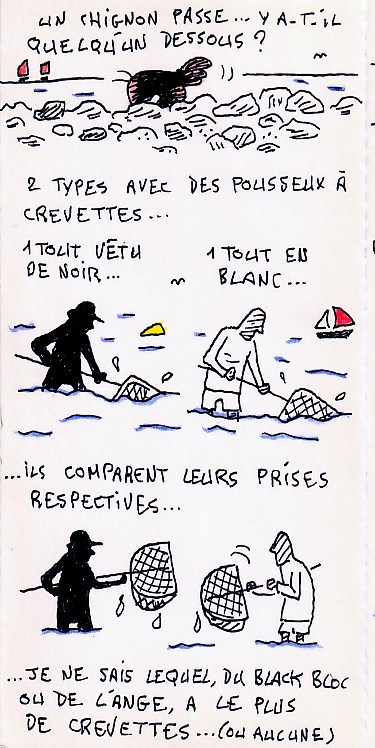 UN CHIGNON PASSE... Y A-T-IL
QUELQU'UN DESSOUS ?
2 TYPES AVEC DES POUSSEUX À
CREVETTES...
1 TOUT VÊTU
DE NOIR...
1 TOUT EN
BLANC...
...ILS COMPARENT LEURS PRISES
RESPECTIVES...
...JE NE SAIS LEQUEL, DU BLACK BLOC
OU DE L'ANGE, A LE PLUS
DE CREVETTES...(OU AUCUNE)